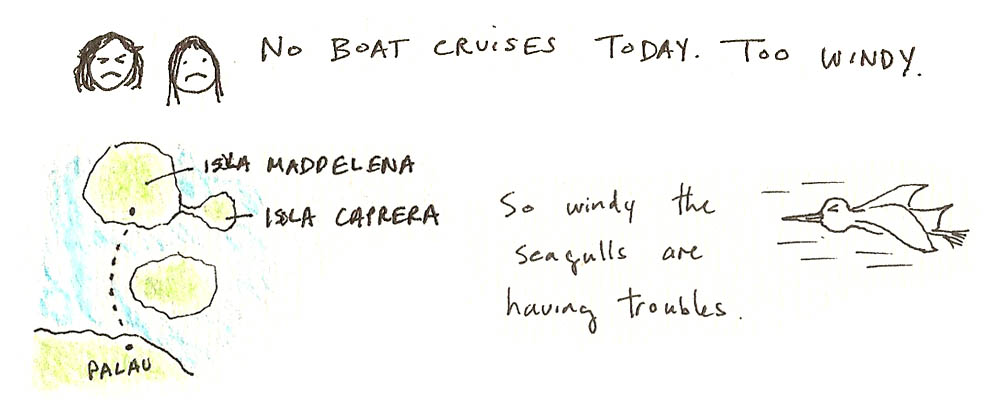 NO BOAT CRUISES TODAY. TOO WINDY.
ISLA MADDELENA
ISLA CAPRERA
So windy the
seagulls are
having troubles.
PALAU